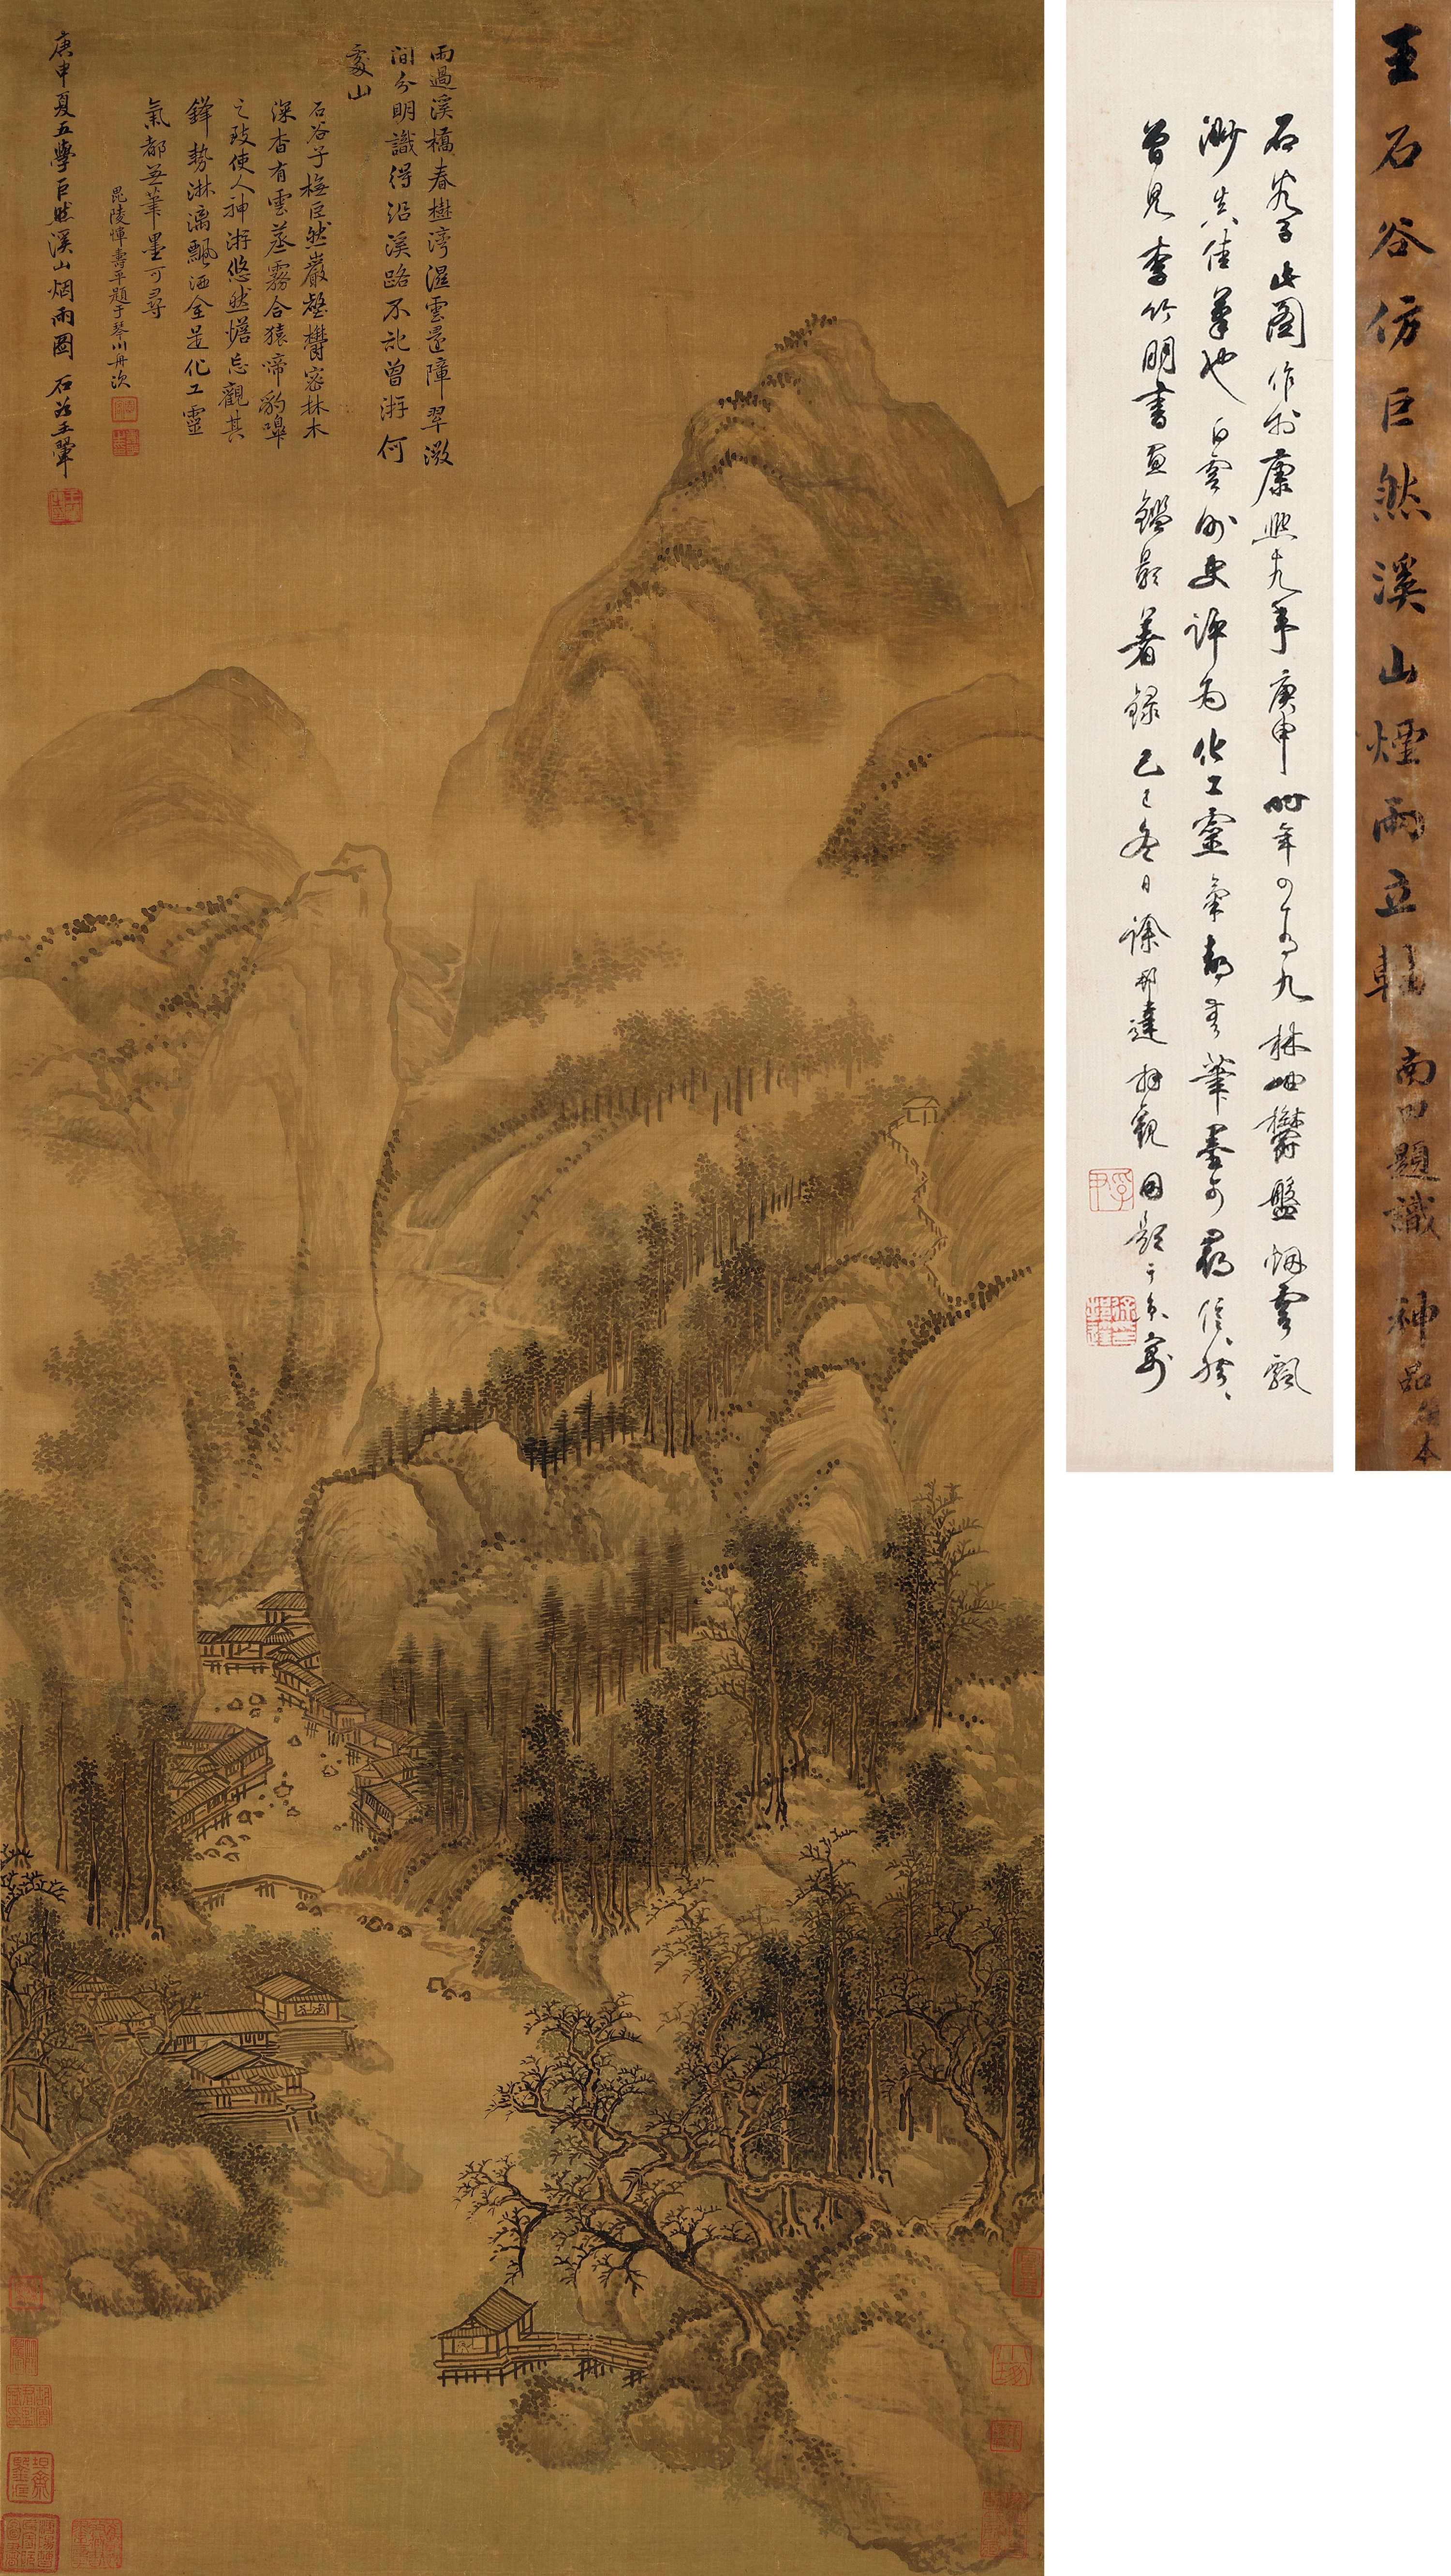 王石谷仿巨然溪山煙雨立軸 南田題識 神品 本
石谷子此圖作於康熙十九年庚申時年四十有九林岫鬱盤烟雲飄
渺真佳筆也白雲外史評為化工靈氣都無筆墨可尋信然
曾見李竹朋書畫鑑影著錄己巳冬日徐邦達拜觀因題于京寓
雨過溪橋春樹灣濕雲還障翠微
間分明識得沿溪路不記曾游何
處山
石谷子橅巨然巖壑欝密林木
深杳有雲蒸霧合猿啼豹嘷
之致使人神游悠然憺忘觀其
鋒勢淋漓飄洒全是化工靈
氣都無筆墨可尋
毘陵惲壽平題于琴川舟次
庚申夏五學巨然溪山烟雨圖 石谷王翬